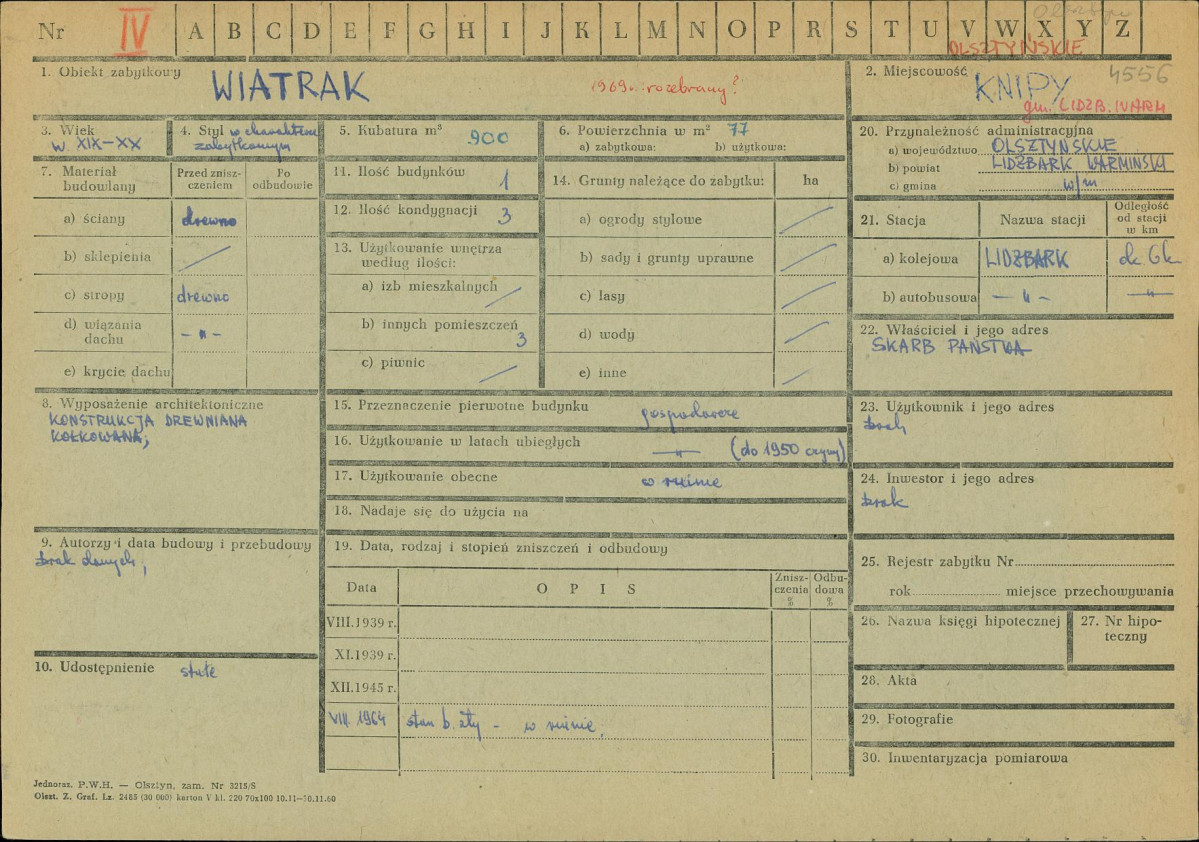 Nr IV A B C D E F G H I J K L M N O P R S T U V W X Y Z
Olsztyn
OLSZTYŃSKIE
1. Obiekt zabytkowy WIATRAK
1969 r. rozebrany?
2. Miejscowość KNIPY 4556
gm. LIDZB. WARM
3. Wiek
w. XIX–XX
4. Styl w charakterze
zabytkowym
5. Kubatura m³ 900
6. Powierzchnia w m² 77
a) zabytkowa: b) użytkowa:
20. Przynależność administracyjna
a) województwo OLSZTYŃSKIE
b) powiat LIDZBARK WARMIŃSKI
c) gmina w/m
7. Materiał
budowlany
Przed znisz-
czeniem
Po
odbudowie
a) ściany drewno
b) sklepienia
c) stropy drewno
d) wiązania
dachu –"–
e) krycie dachu
11. Ilość budynków 1
12. Ilość kondygnacji 3
13. Użytkowanie wnętrza
według ilości:
a) izb mieszkalnych
b) innych pomieszczeń
3
c) piwnic
14. Grunty należące do zabytku: ha
a) ogrody stylowe
b) sady i grunty uprawne
c) lasy
d) wody
e) inne
21. Stacja Nazwa stacji
Odległość
od stacji
w km
a) kolejowa LIDZBARK ok 6k
b) autobusowa –"– –"–
22. Właściciel i jego adres
SKARB PAŃSTWA
8. Wyposażenie architektoniczne
KONSTRUKCJA DREWNIANA
KOŁKOWANA;
15. Przeznaczenie pierwotne budynku gospodarcze
16. Użytkowanie w latach ubiegłych –"– (do 1950 czynny)
17. Użytkowanie obecne w ruinie
18. Nadaje się do użycia na
23. Użytkownik i jego adres
brak
24. Inwestor i jego adres
brak
9. Autorzy i data budowy i przebudowy
brak danych;
10. Udostępnienie stałe
19. Data, rodzaj i stopień zniszczeń i odbudowy
Data OPIS
Znisz-
czenia
%
Odbu-
dowa
%
VIII.1939 r.
XI.1939 r.
XII.1945 r.
VIII. 1964 stan b. zły – w ruinie;
25. Rejestr zabytku Nr
rok miejsce przechowywania
26. Nazwa księgi hipotecznej
27. Nr hipo-
teczny
28. Akta
29. Fotografie
30. Inwentaryzacja pomiarowa
Jednoraz. P.W.H. — Olsztyn, zam. Nr 3215/S
Olszt. Z. Graf. Lz. 2485 (30 000) karton V kl. 220 70x100 10.11—30.11.60